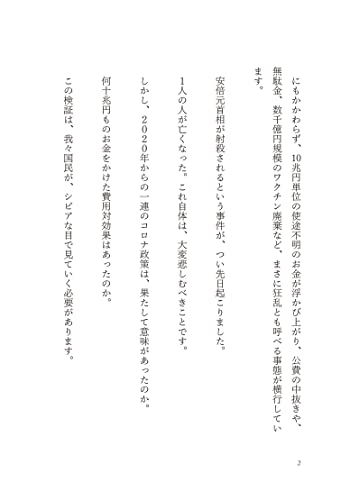 にもかかわらず、10兆円単位の使途不明のお金が浮かび上がり、公費の中抜きや、
無駄金、数千億円規模のワクチン廃棄など、まさに狂乱とも呼べる事態が横行してい
ます。
安倍元首相が射殺されるという事件が、つい先日起こりました。
1人の人が亡くなった。これ自体は、大変悲しむべきことです。
しかし、2020年からの一連のコロナ政策は、果たして意味があったのか。
何十兆円ものお金をかけた費用対効果はあったのか。
この検証は、我々国民が、シビアな目で見ていく必要があります。
2